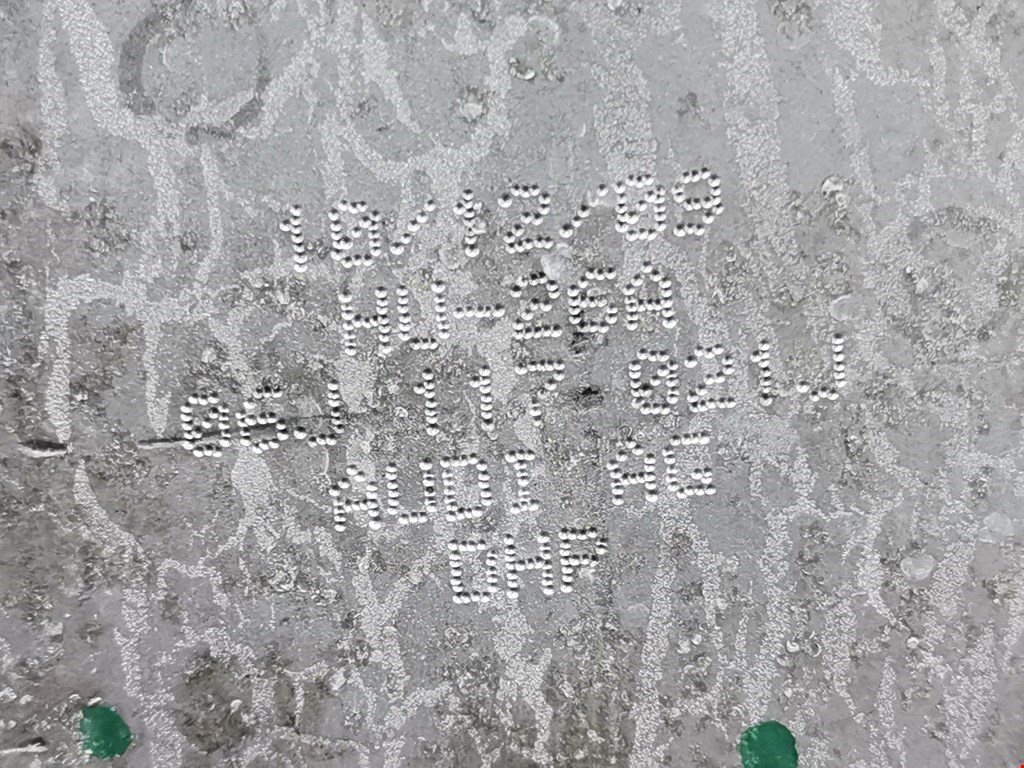 10/12/09
HU-26A
06J 117 021J
AUDI AG
DHP